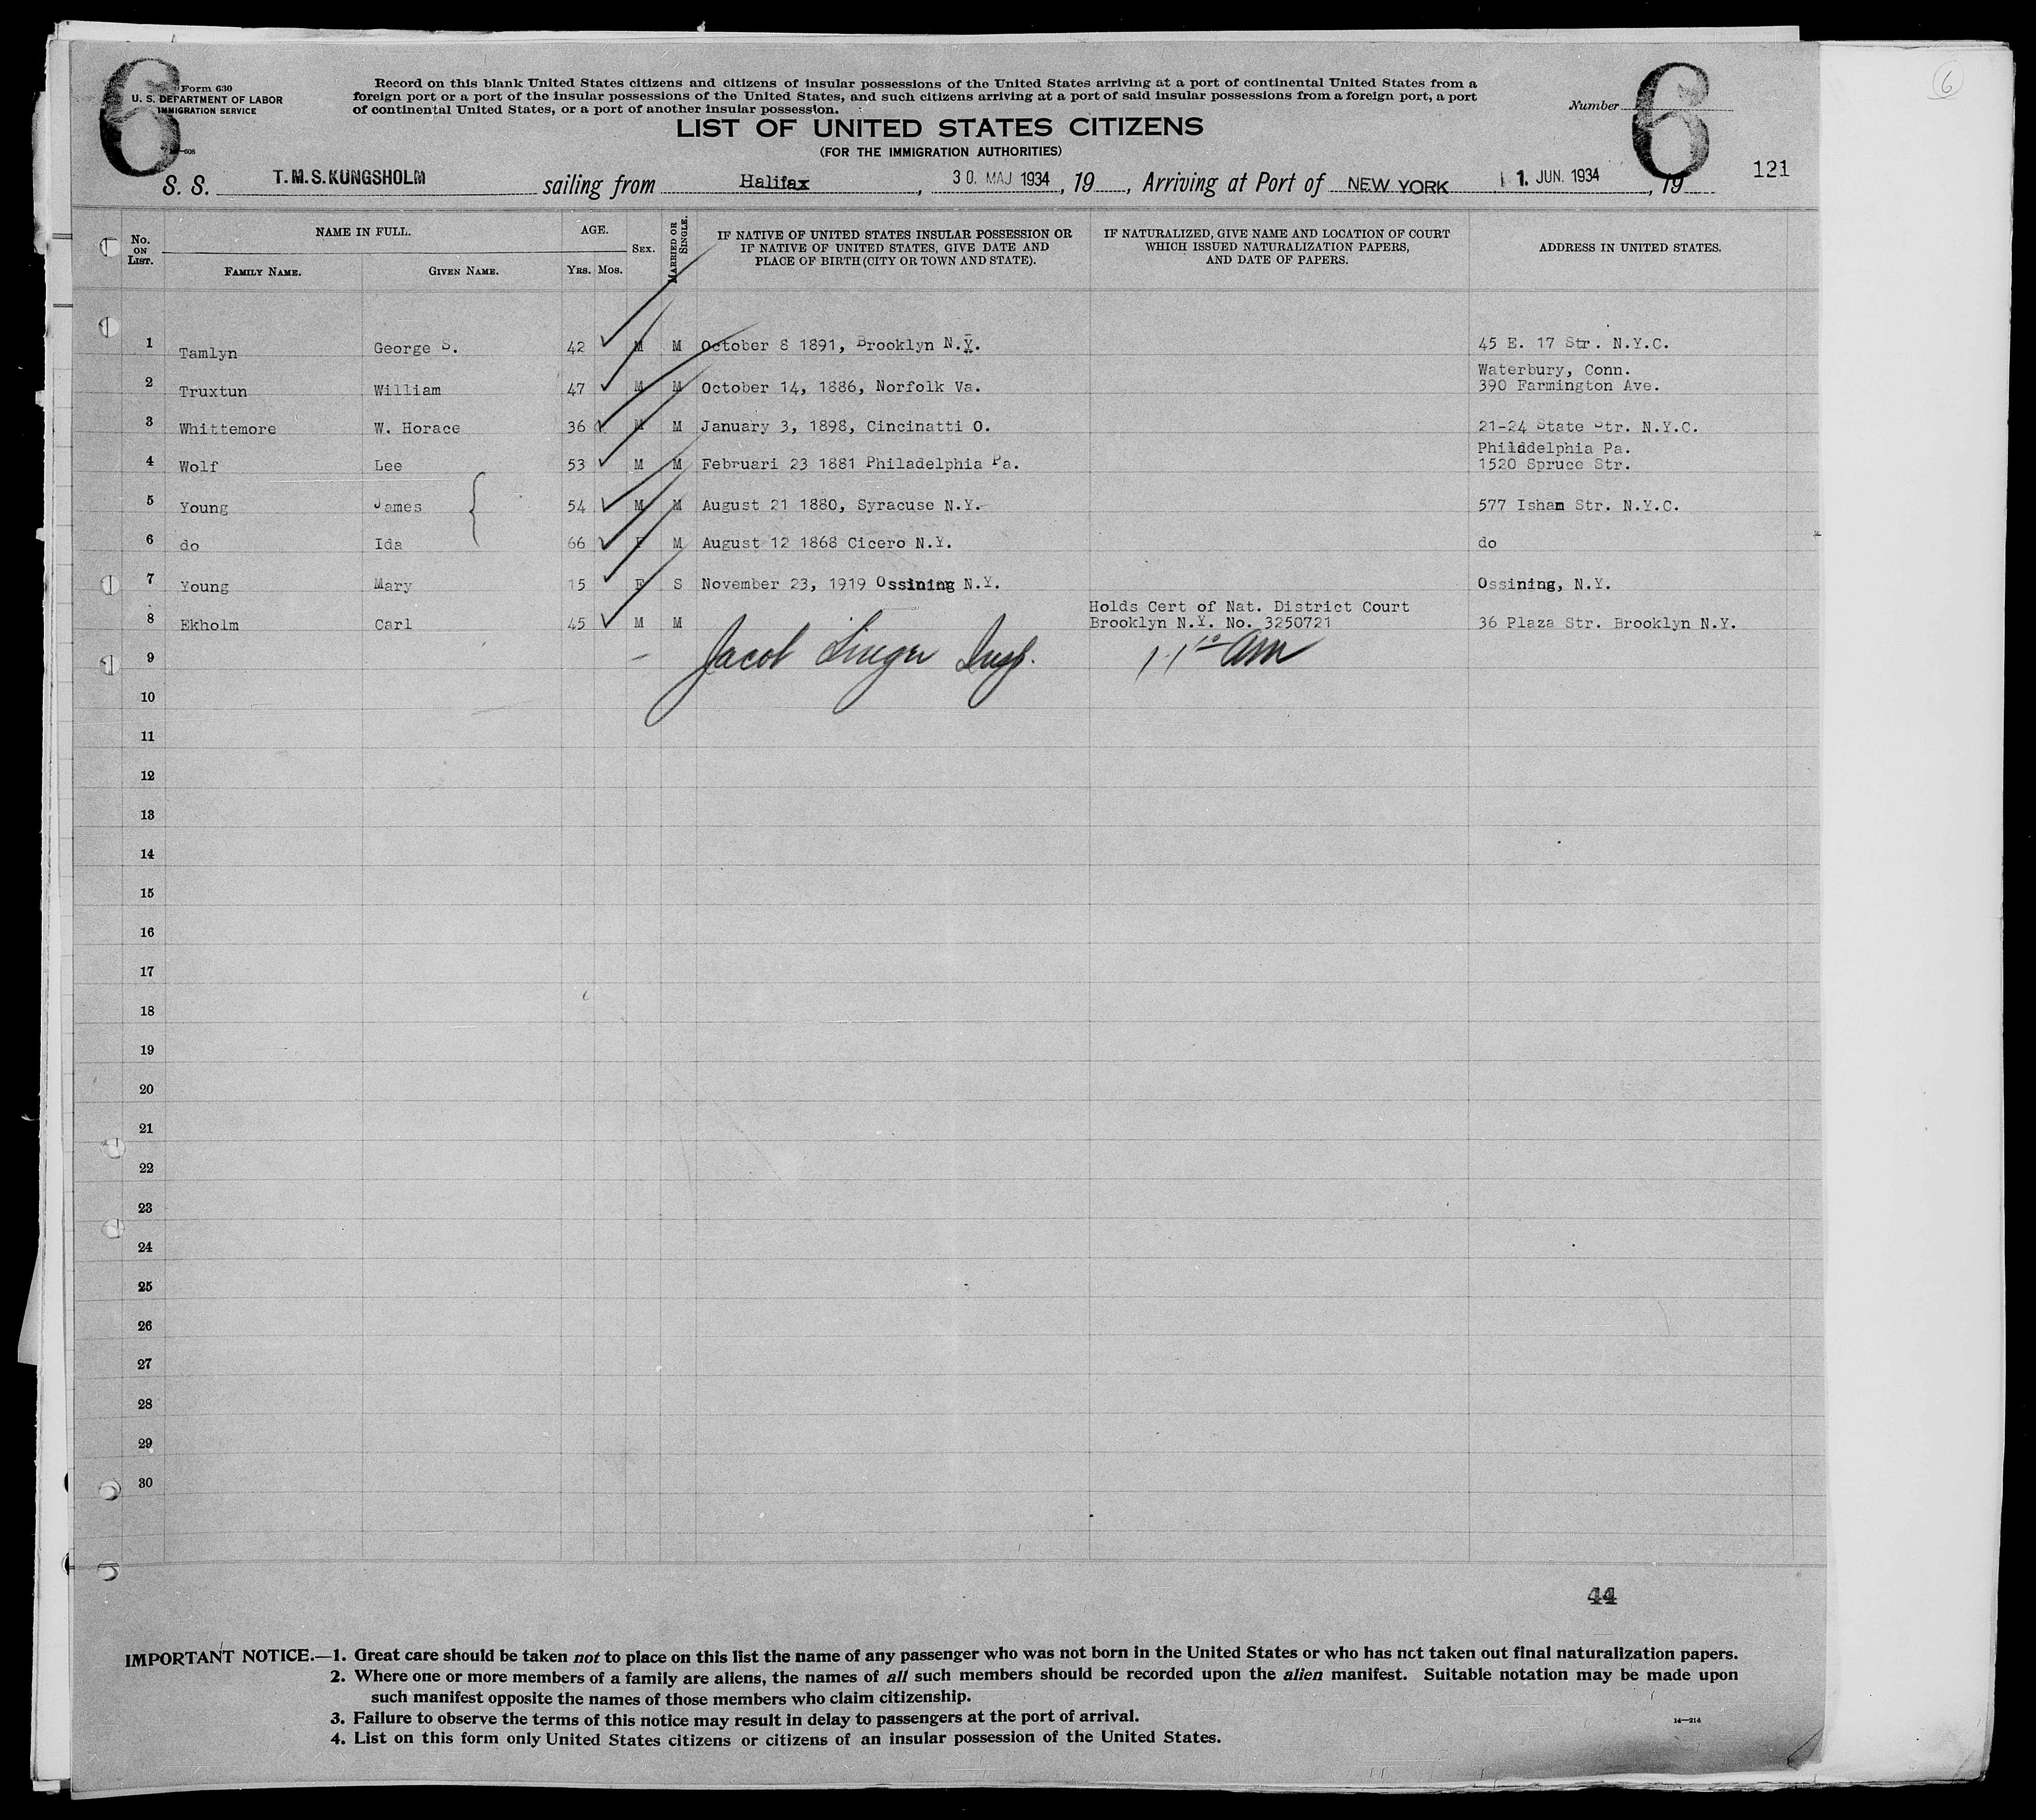 6
Form 630
U. S. DEPARTMENT OF LABOR
IMMIGRATION SERVICE
Record on this blank United States citizens and citizens of insular possessions of the United States arriving at a port of continental United States from a
foreign port or a port of the insular possessions of the United States, and such citizens arriving at a port of said insular possessions from a foreign port, a port
of continental United States, or a port of another insular possession.
Number
6
6
LIST OF UNITED STATES CITIZENS
(FOR THE IMMIGRATION AUTHORITIES)
121
S. S. T.M.S. KUNGSHOLM sailing from Halifax, 30. MAJ 1934, 19, Arriving at Port of NEW YORK 1. JUN. 1934, 19
No. ON LIST. NAME IN FULL. AGE. SEX. MARRIED OR SINGLE. IF NATIVE OF UNITED STATES INSULAR POSSESSION OR IF NATIVE OF UNITED STATES, GIVE DATE AND PLACE OF BIRTH (CITY OR TOWN AND STATE). IF NATURALIZED, GIVE NAME AND LOCATION OF COURT WHICH ISSUED NATURALIZATION PAPERS, AND DATE OF PAPERS. ADDRESS IN UNITED STATES.
FAMILY NAME. GIVEN NAME. YRS. MOS.
1 Tamlyn George S. 42 M M October 8 1891, Brooklyn N.Y. 45 E. 17 Str. N.Y.C.
Waterbury, Conn.
2 Truxtun William 47 M M October 14, 1886, Norfolk Va. 390 Farmington Ave.
3 Whittemore W. Horace 36 M M January 3, 1898, Cincinatti O. 21-24 State Str. N.Y.C.
Philadelphia Pa.
4 Wolf Lee 53 M M Februari 23 1881 Philadelphia Pa. 1520 Spruce Str.
5 Young James 54 M M August 21 1880, Syracuse N.Y. 577 Isham Str. N.Y.C.
6 do Ida 66 F M August 12 1868 Cicero N.Y. do
7 Young Mary 15 F S November 23, 1919 Ossining N.Y. Ossining, N.Y.
Holds Cert of Nat. District Court
8 Ekholm Carl 45 M M Brooklyn N.Y. No. 3250721 36 Plaza Str. Brooklyn N.Y.
9 Jacob Singer Insp. 11 10 AM
10
11
12
13
14
15
16
17
18
19
20
21
22
23
24
25
26
27
28
29
30
44
IMPORTANT NOTICE.—1. Great care should be taken not to place on this list the name of any passenger who was not born in the United States or who has not taken out final naturalization papers.
2. Where one or more members of a family are aliens, the names of all such members should be recorded upon the alien manifest. Suitable notation may be made upon
such manifest opposite the names of those members who claim citizenship.
3. Failure to observe the terms of this notice may result in delay to passengers at the port of arrival.
14—214
4. List on this form only United States citizens or citizens of an insular possession of the United States.